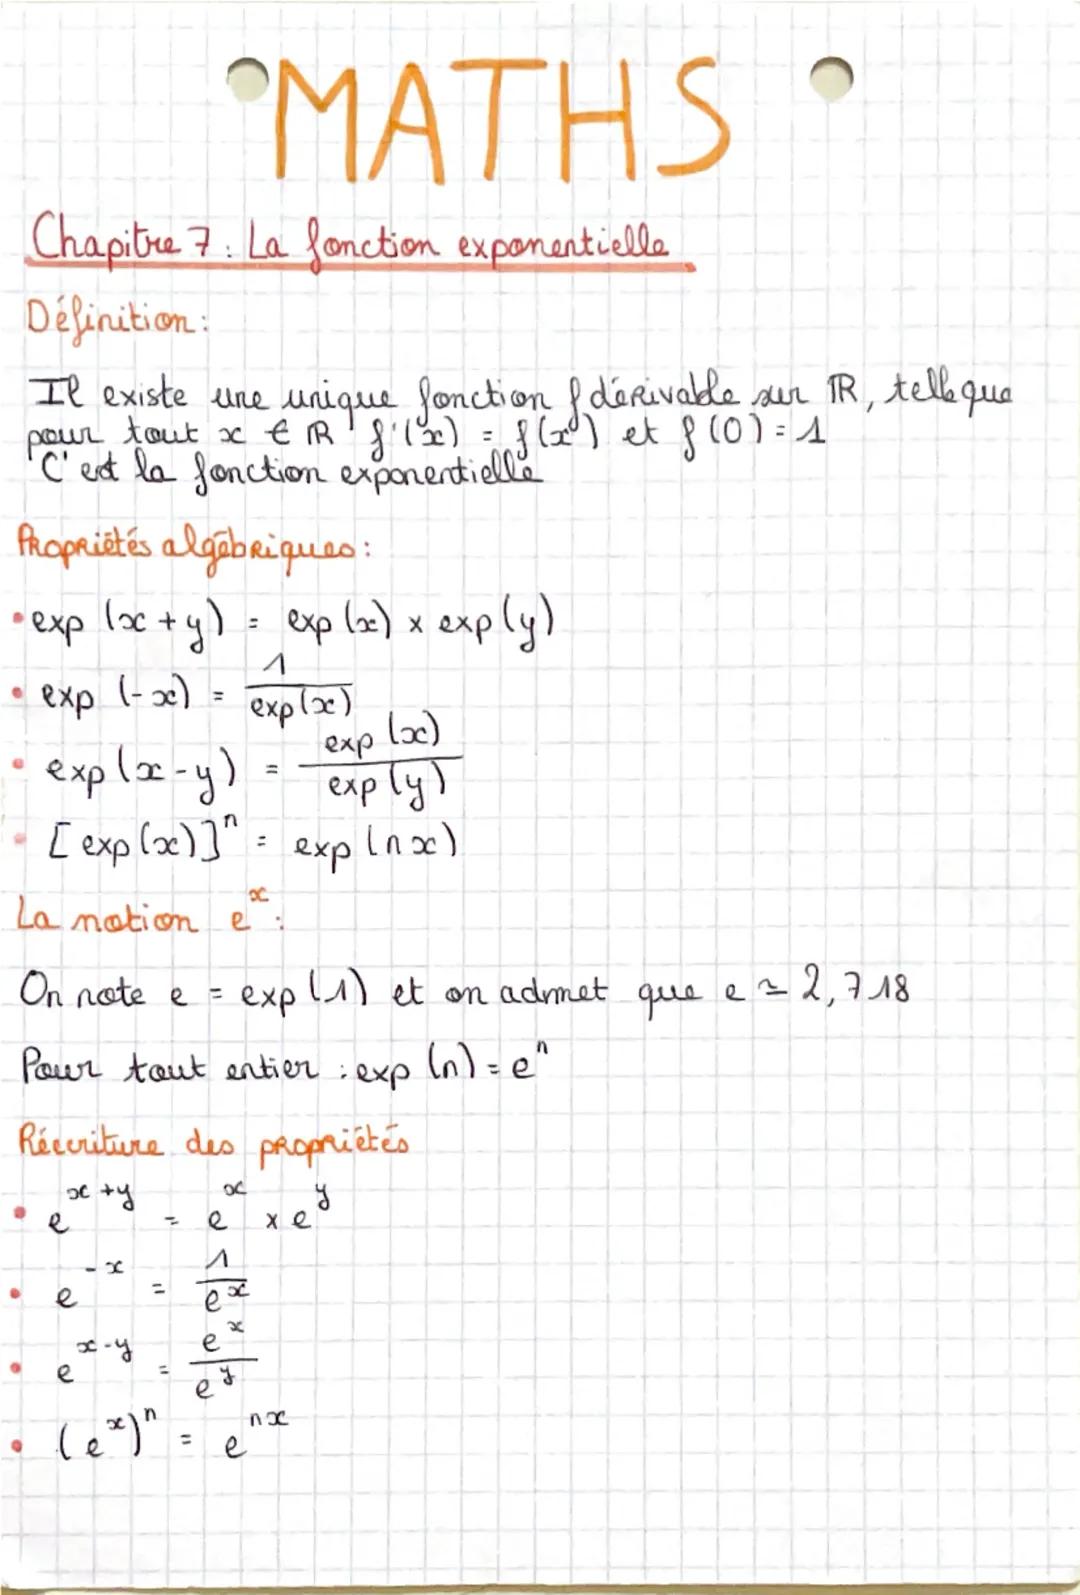 MATHS
Chapitre 7 : La fonction exponentielle
Définition :
Il existe une unique fonction f dérivable sur ℝ, telle que
pour tout x ∈ ℝ f'(x) = f(x) et f(0) = 1
C'est la fonction exponentielle
Propriétés algébriques :
• exp (x + y) = exp (x) × exp (y)
• exp (-x) = 1 / exp (x)
• exp (x - y) = exp (x) / exp (y)
• [exp (x)]ⁿ = exp (nx)
La notion eˣ :
On note e = exp (1) et on admet que e ≃ 2,718
Pour tout entier : exp (n) = eⁿ
Réécriture des propriétés
• e^(x+y) = e^x × e^y
• e^(-x) = 1 / e^x
• e^(x-y) = e^x / e^y
• (e^x)^n = e^(nx)